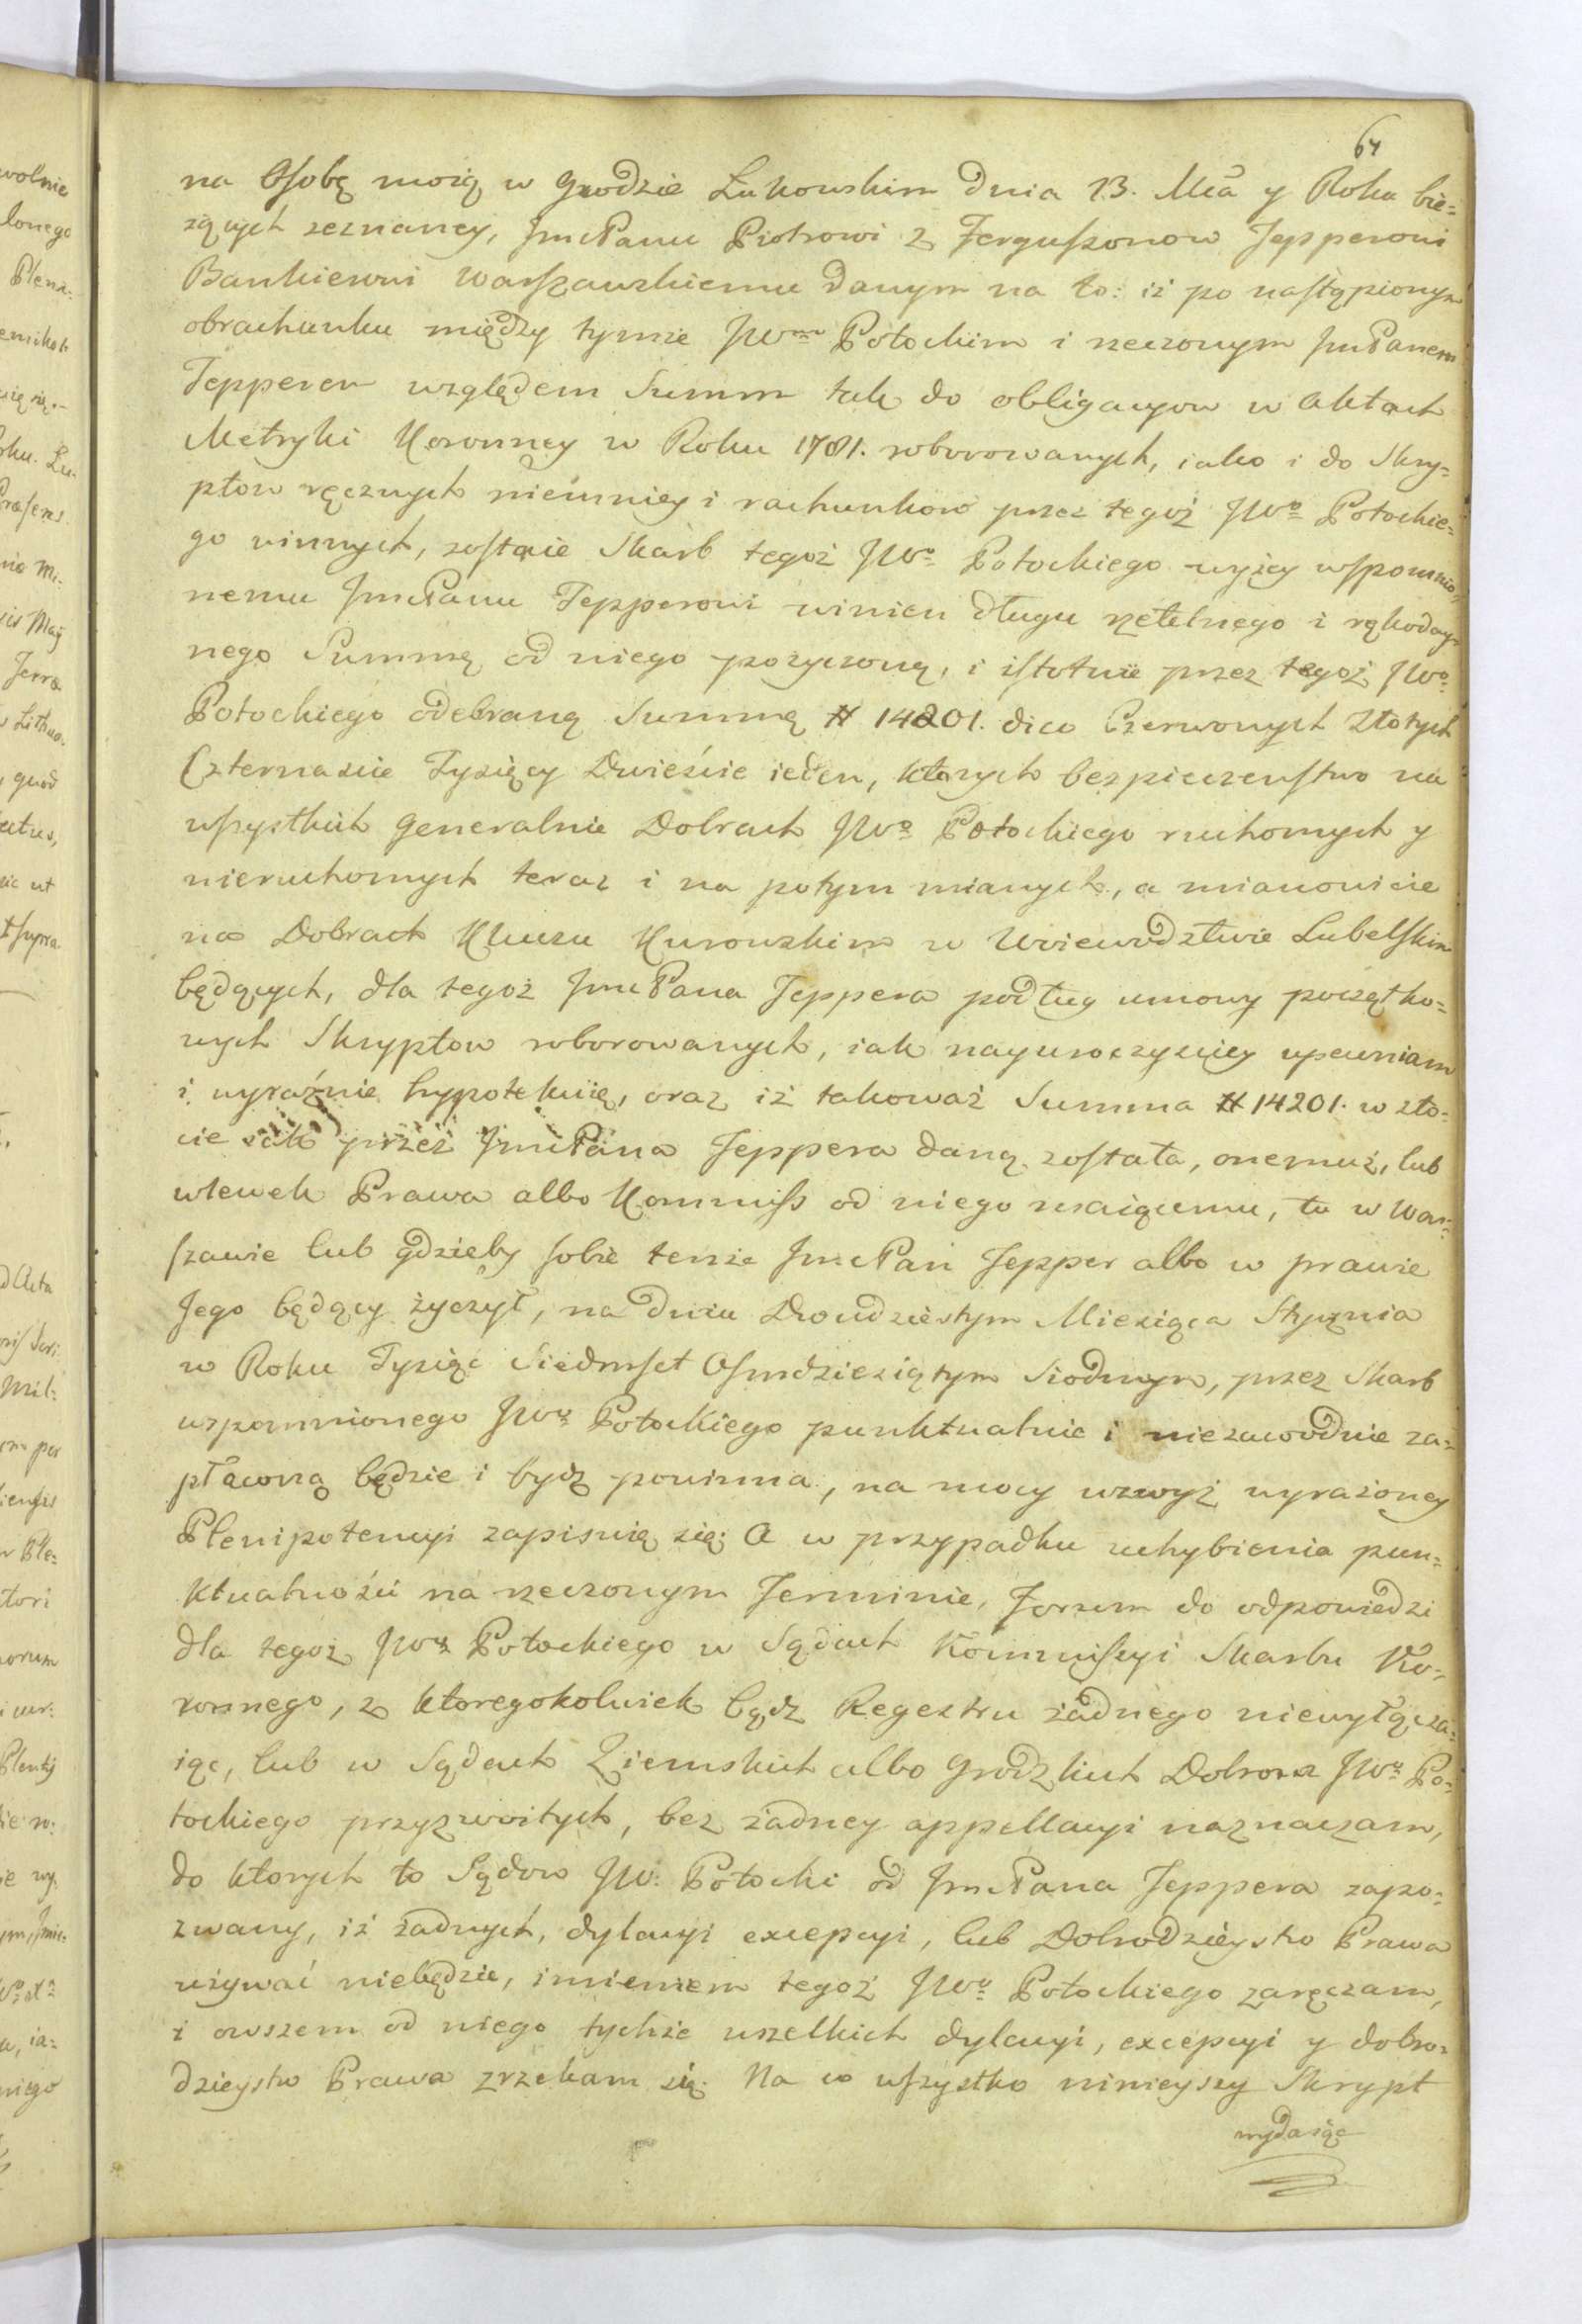 64
na Osobę moię w Grodzie Lukowskim dnia 13. Mca y Roku bie=
żących zeznaney, JmcPanu Piotrowi z Ferguszonow Tepperowi
Bankierowi Warszawskiemu danym na to: iż po nastąpionym
obrachunku między tymże JWm Potockim i rzeczonym JmPanem
Tepperem względem Summ tak do obligacyow w Aktach
Metryki Koronney w Roku 1781. roborowanych, iako i do Skry=
ptow ręcznych niemniey i rachunkow przez tegoż JWo Potockie=
go winnych, zostaie Skarb tegoż JWo Potockiego wyżey wspomnio=
nemu JmcPanu Tepperowi winien długu rzetelnego i rękoday=
nego Summę od niego pozyczoną, i istotnie przez tegoż JWo
Potockiego odebraną Summę # 14201. dico Czerwonych Złotych
Czternaście Tysięcy Dwieście ieden, ktorych bezpieczenstwo na
wszystkich generalnie Dobrach JWo Potockiego ruchomych y
nieruchomych teraz i na potym mianych, a mianowicie
na Dobrach Kluczu Kurowskim w Woiewodztwie Lubelskim
będących, dla tegoż JmcPana Teppera podług umowy początko=
wych Skryptow roborowanych, iak nayuroczyściey upewniam
i wyraźnie hypotekuię, oraz iż takoważ Summa # 14201. w zło=
cie iak przez JmcPana Teppera daną została, onemuż, lub
wlewek Prawa albo Kommiss od niego maiącemu, tu w War=
szawie lub gdzieby sobie tenże JmcPan Tepper albo w prawie
Jego będący życzył, na dniu Dwudziestym Miesiąca Stycznia
w Roku Tysiąc Siedmset Osmdziesiątym Siodmym, przez Skarb
wspomnionego JWo Potockiego punktualnie i niezawodnie za=
płaconą będzie i bydz powinna, na mocy wzwyż wyrażoney
Plenipotencyi zapisuię się; A w przypadku uchybienia pun=
ktualności na rzeczonym Terminie, Forum do odpowiedzi
dla tegoż JWo Potockiego w Sądach Kommissyi Skarbu Ko=
ronnego, z ktoregokolwiek bądz Regestru żadnego niewyłącza=
iąc, lub w Sądach Ziemskich albo Grodzkich Dobrom JWo Po=
tockiego przyzwoitych, bez żadney appellacyi naznaczam,
do ktorych to Sądow JW. Potocki od JmcPana Teppera zapo=
zwany, iż żadnych, dylacyi excepcyi, lub Dobrodzieystw Prawa
używać niebędzie, imieniem tegoż JWo Potockiego zaręczam,
i owszem od niego tychże wszelkich dylacyi, excepcyi y dobro=
dzieystw Prawa zrzekam się. Na co wszystko ninieyszy Skrypt
wydaiąc